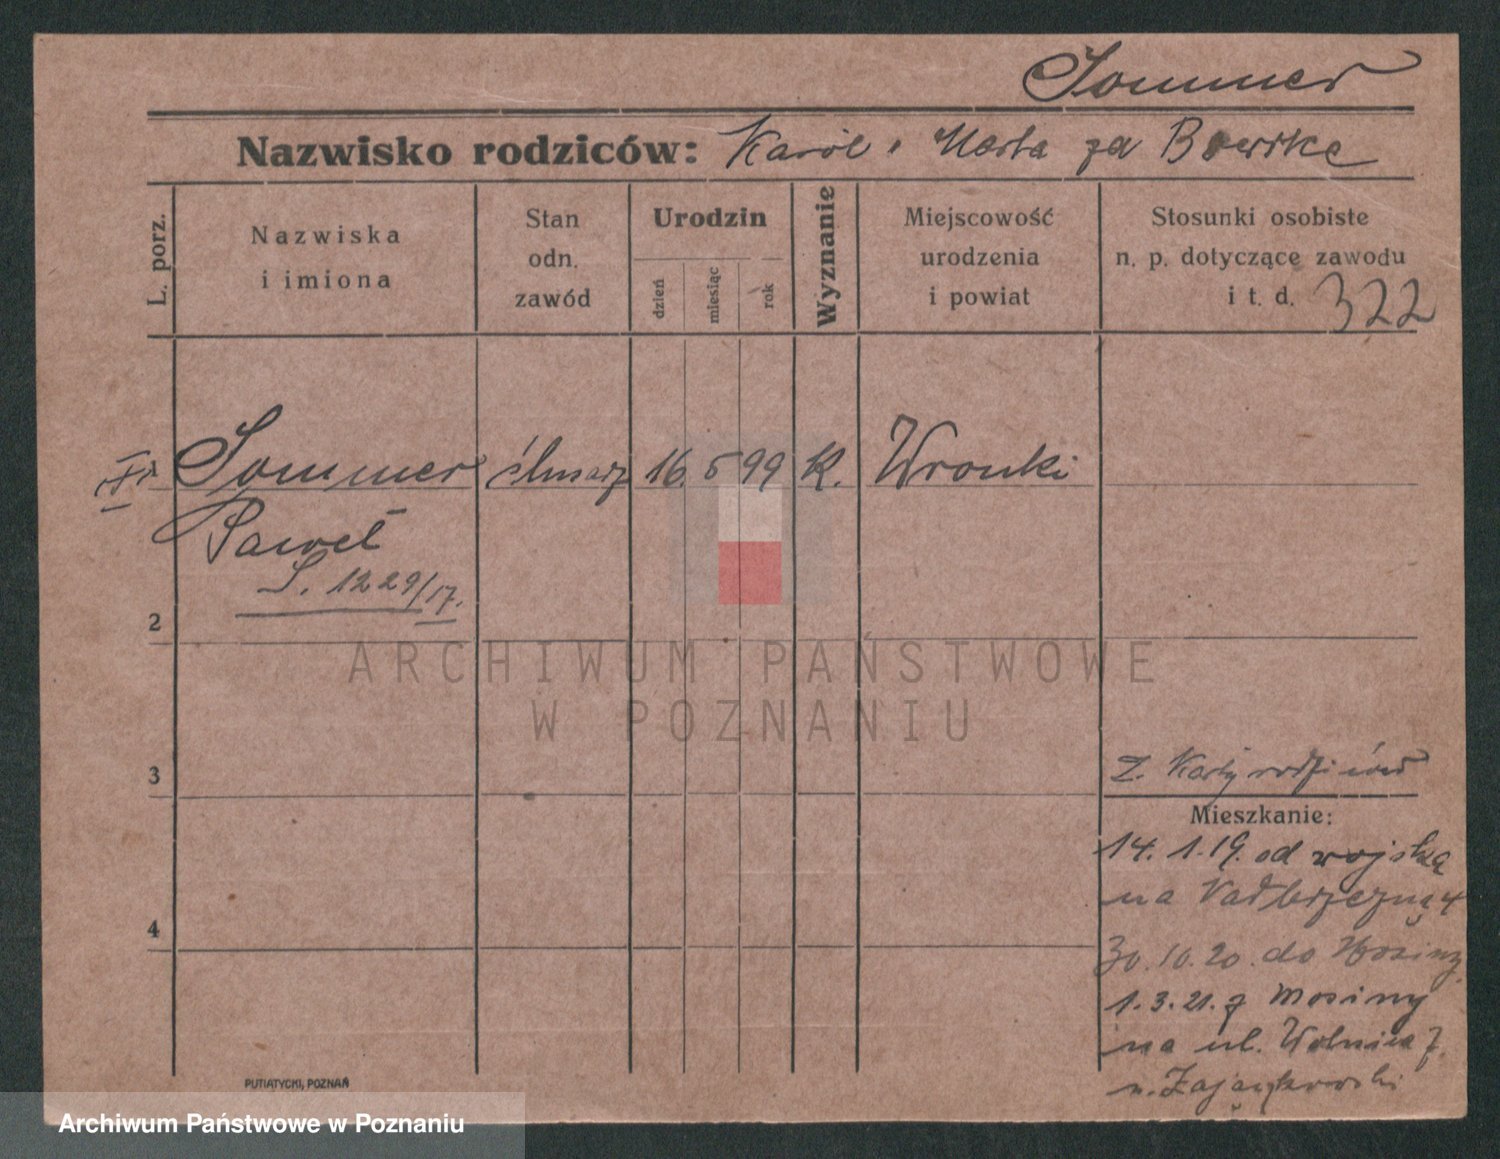 Sommer
Nazwisko rodziców: Karól i Marta za
L. porz.
Nazwiska
i imiona
Stan
odn.
zawód
Urodzin
dzień
miesiąc
rok
Wyznanie
Miejscowość
urodzenia
i powiat
Stosunki osobiste
n. p. dotyczące zawodu
i t. d. 322
1 Sommer ślusarz 16. 5 99 k. Wronki
Paweł
S. 1229/17.
2
ARCHIWUM PAŃSTWOWE
W POZNANIU
3
z. Karty rodziców
Mieszkanie:
14. 1. 19. od wojska
na Nadbrzeżną 4
4
30. 10. 20. do Mosiny
1. 3. 21. z Mosiny
na ul. Wolnica 7.
n. Zajączkowski
PUTIATYCKI, POZNAŃ
Archiwum Państwowe w Poznaniu